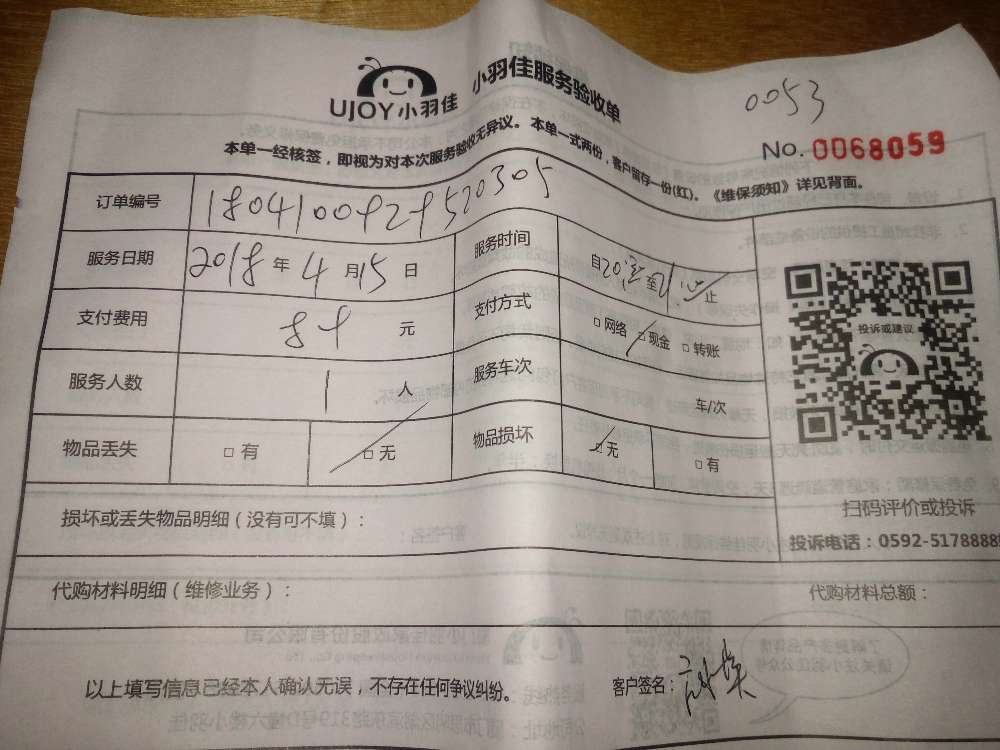 UJOY小羽佳 小羽佳服务验收单
0053
No. 0068059
本单一经核签，即视为对本次服务验收无异议。本单一式两份，客户留存一份(红)。《维保须知》详见背面。
订单编号
服务日期 2018 年 4 月 15 日 服务时间
支付费用 89 元 支付方式 □网络 □现金 □转账
服务人数 1 人 服务车次 车/次
物品丢失 □有 □无 物品损坏 □无 □有
投诉或建议
扫码评价或投诉
损坏或丢失物品明细（没有可不填）：
投诉电话：0592-5178888
代购材料明细（维修业务）： 代购材料总额：
以上填写信息已经本人确认无误，不存在任何争议纠纷。 客户签名：